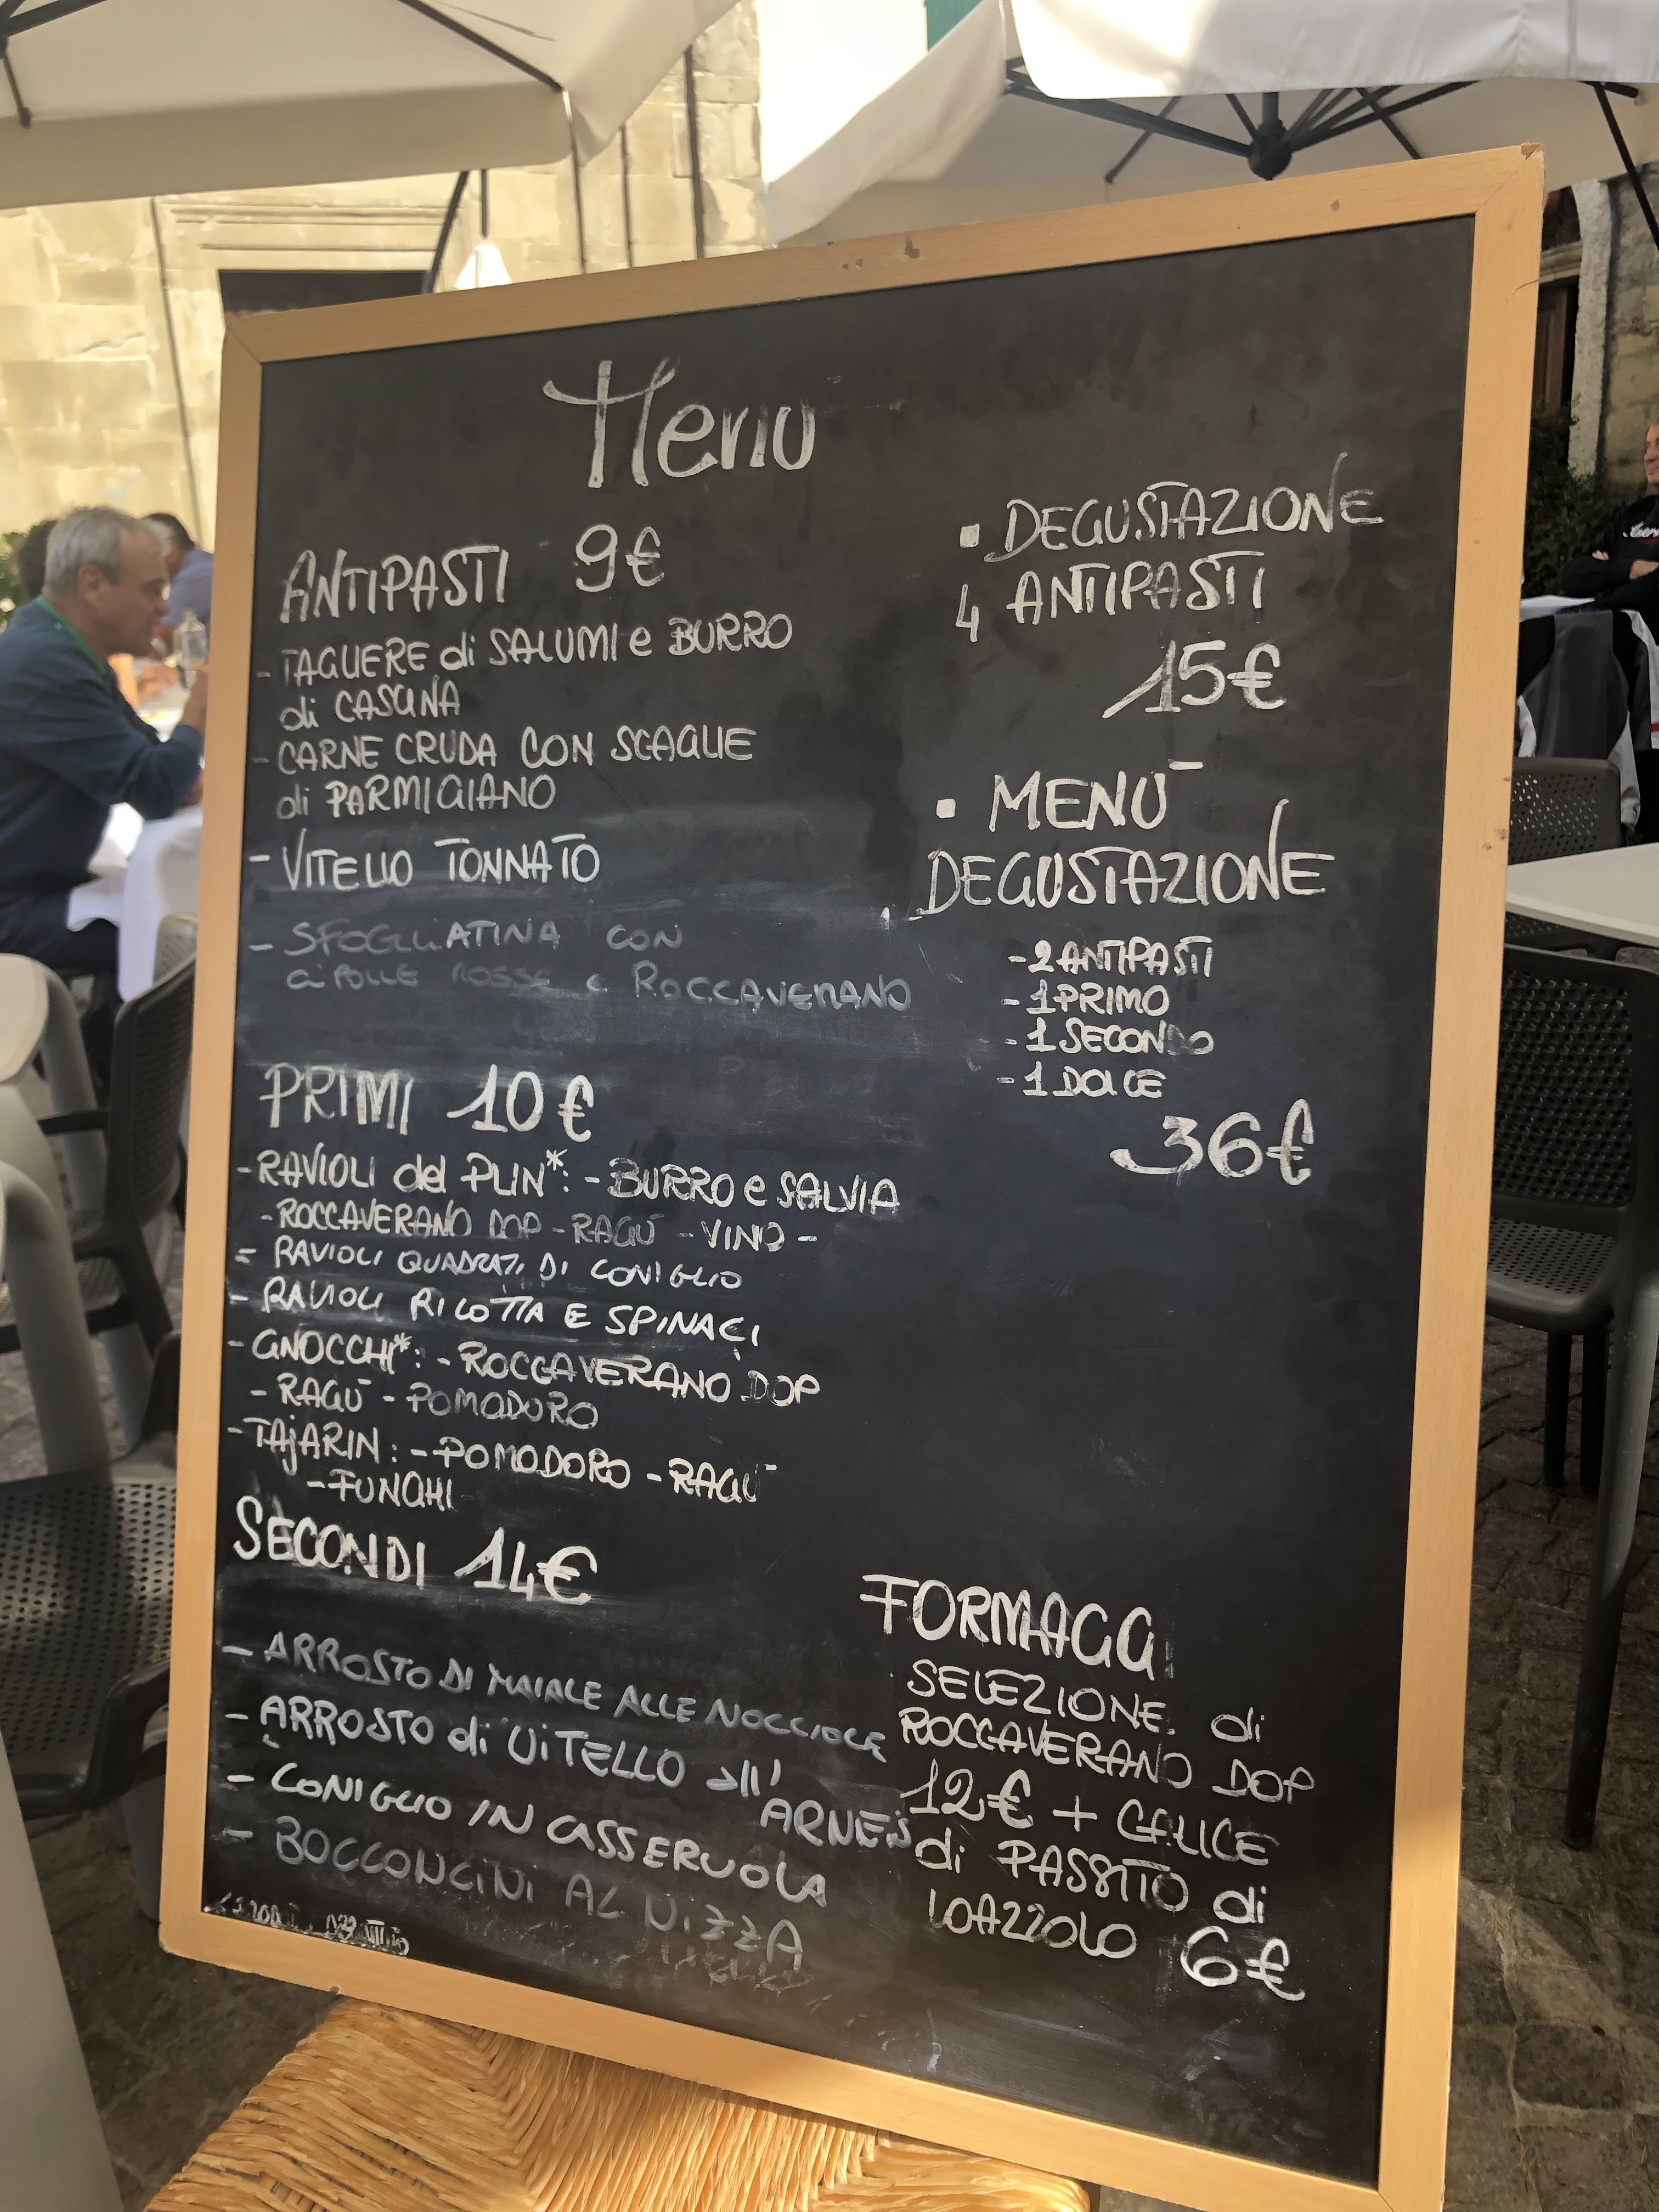 Menu
ANTIPASTI 9€
- TAGLIERE di SALUMI e BURRO
di CASCINA
- CARNE CRUDA CON SCAGLIE
di PARMIGIANO
- VITELLO TONNATO
- SFOGLIATINA CON
CIPOLLE ROSSE e ROCCAVERANO
PRIMI 10€
- RAVIOLI del PLIN*: - BURRO e SALVIA
- ROCCAVERANO DOP - RAGÙ - VINO -
- RAVIOLI QUADRATI DI CONIGLIO
- RAVIOLI RICOTTA E SPINACI
- GNOCCHI*: - ROCCAVERANO DOP
- RAGÙ - POMODORO
- TAjARIN: - POMODORO - RAGÙ
- FUNGHI
SECONDI 14€
- ARROSTO DI MAIALE ALLE NOCCIOLE
- ARROSTO di ViTELLO all'
ARNEiS
- CONIGLIO IN CASSERUOLA
- BOCCONCiNi AL NiZZA
▪ DEGUSTAZIONE
4 ANTIPASTI
15€
▪ MENÙ
DEGUSTAZIONE
- 2 ANTIPASTI
- 1 PRIMO
- 1 SECONDO
- 1 DOLCE
36€
FORMAGGI
SELEZIONE di
ROCCAVERANO DOP
12€ + CALICE
di PASSITO di
LOAZZOLO 6€